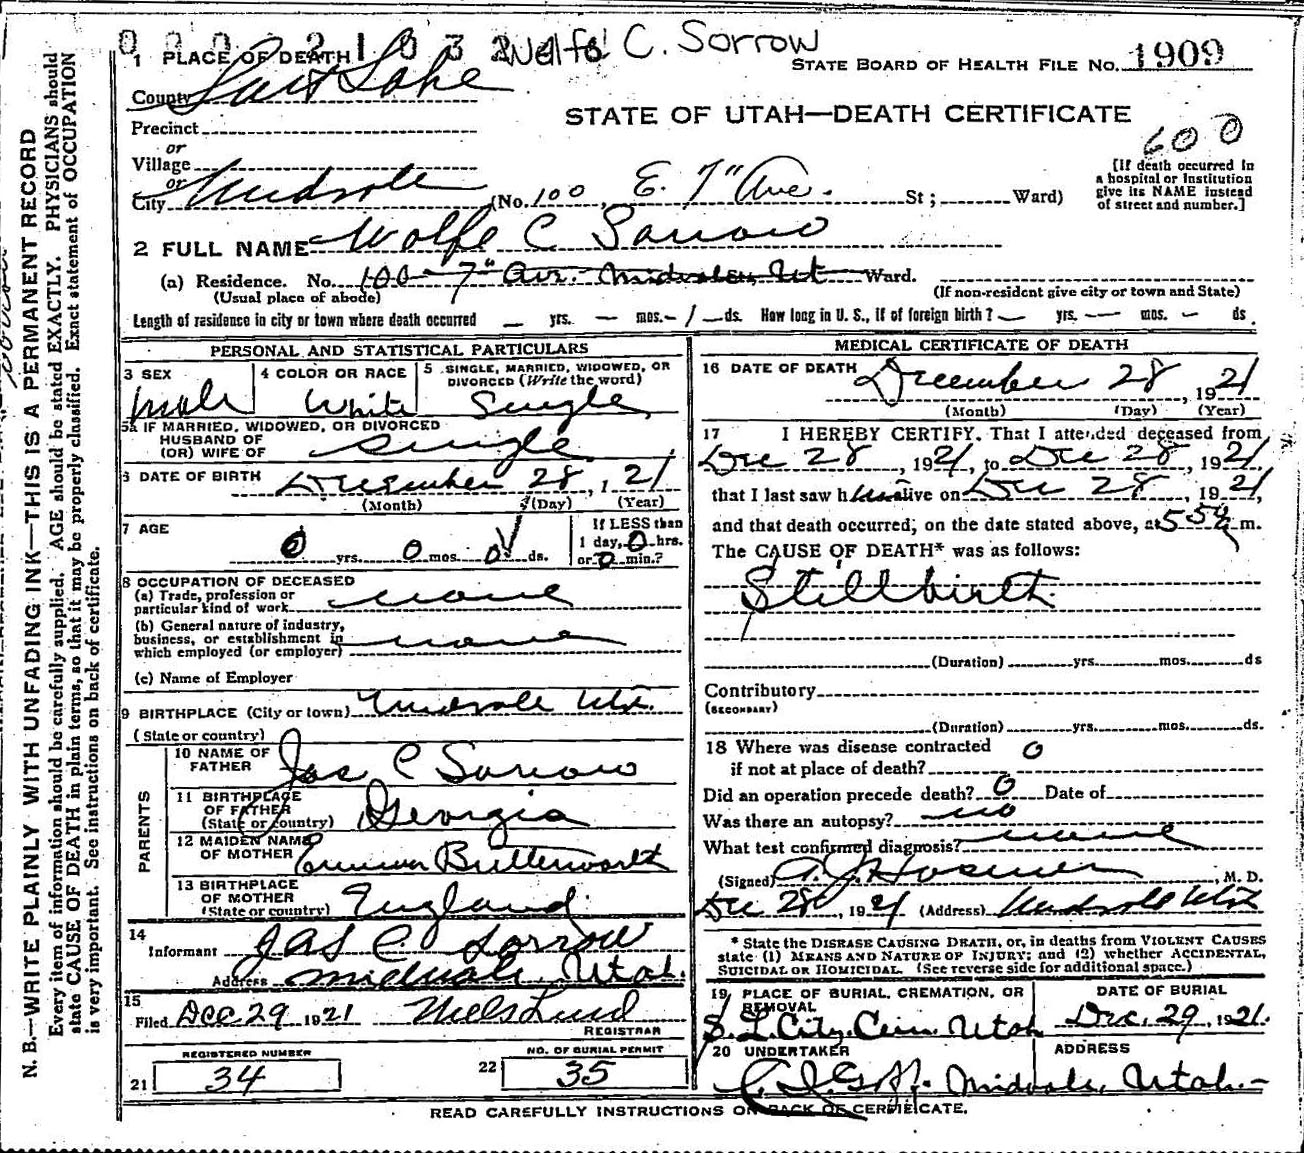 Wolfe C. Sorrow
1 PLACE OF DEATH
STATE BOARD OF HEALTH FILE No. 1909
County Salt Lake
STATE OF UTAH—DEATH CERTIFICATE
Precinct
600
or
Village
[If death occurred in
a hospital or Institution
give its NAME instead
of street and number.]
or
City Midvale (No. 100, E. 7" Ave. St; Ward)
2 FULL NAME Wolfe C Sorrow
(a) Residence. No. 100 - 7" Ave. Midvale, Ut Ward.
(Usual place of abode) (If non-resident give city or town and State)
Length of residence in city or town where death occurred — yrs. — mos. — / — ds. How long in U. S., if of foreign birth? — yrs. — mos. — ds.
PERSONAL AND STATISTICAL PARTICULARS
3 SEX 4 COLOR OR RACE 5 SINGLE, MARRIED, WIDOWED, OR
DIVORCED (Write the word)
Male White Single
5a IF MARRIED, WIDOWED, OR DIVORCED
HUSBAND OF
(OR) WIFE OF Single
6 DATE OF BIRTH December 28, 1 21
(Month) (Day) (Year)
7 AGE 0 yrs. 0 mos. 0 ds.
If LESS than
1 day, 0 hrs.
or 0 min.?
8 OCCUPATION OF DECEASED
(a) Trade, profession or
particular kind of work none
(b) General nature of industry,
business, or establishment in
which employed (or employer) none
(c) Name of Employer
9 BIRTHPLACE (City or town) Midvale Utah.
(State or country)
PARENTS
10 NAME OF
FATHER Jas C Sorrow
11 BIRTHPLACE
OF FATHER
(State or country) Georgia
12 MAIDEN NAME
OF MOTHER Butterworth
13 BIRTHPLACE
OF MOTHER
(State or country) England
14
Informant Jas C. Sorrow
Address Midvale, Utah.
15
Filed Dec 29 1921 Niels Lind
REGISTRAR
REGISTERED NUMBER
21 34
NO. OF BURIAL PERMIT
22 35
MEDICAL CERTIFICATE OF DEATH
16 DATE OF DEATH December 28, 1921
(Month) (Day) (Year)
17 I HEREBY CERTIFY, That I attended deceased from
Dec 28, 1921, to Dec 28, 1921
that I last saw h alive on Dec 28, 1921,
and that death occurred, on the date stated above, at m.
The CAUSE OF DEATH* was as follows:
Stillbirth
(Duration) yrs. mos. ds
Contributory
(SECONDARY)
(Duration) yrs. mos. ds.
18 Where was disease contracted
if not at place of death? 0
Did an operation precede death? 0 Date of
Was there an autopsy? no
What test confirmed diagnosis? none
(Signed) A. J. Hosmer, M. D.
Dec 28, 1921 (Address) Midvale Utah
* State the DISEASE CAUSING DEATH, or, in deaths from VIOLENT CAUSES
state (1) MEANS AND NATURE OF INJURY; and (2) whether ACCIDENTAL,
SUICIDAL OR HOMICIDAL. (See reverse side for additional space.)
19 PLACE OF BURIAL, CREMATION, OR
REMOVAL
DATE OF BURIAL
S. L. City Cem Utah Dec. 29, 1921.
20 UNDERTAKER ADDRESS
Midvale, Utah.—
READ CAREFULLY INSTRUCTIONS ON BACK OF CERTIFICATE.
N. B.—WRITE PLAINLY WITH UNFADING INK—THIS IS A PERMANENT RECORD
Every item of information should be carefully supplied. AGE should be stated EXACTLY. PHYSICIANS should
state CAUSE OF DEATH in plain terms, so that it may be properly classified. Exact statement of OCCUPATION
is very important. See instructions on back of certificate.